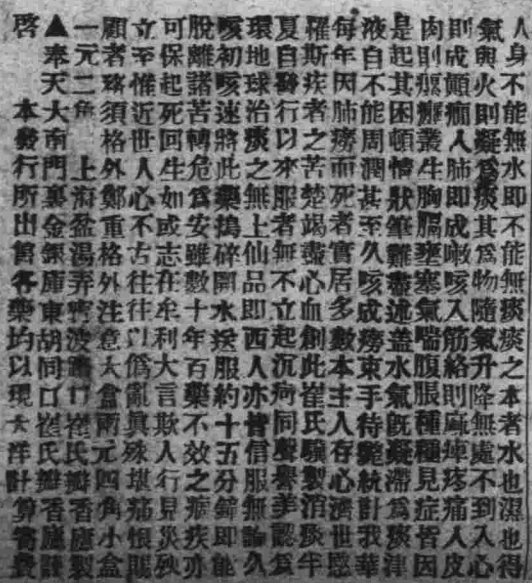 人身不能無水即不能無痰痰之本者水也濕也得
氣與火則凝爲痰其爲物隨氣升降無處不到入心
則成顛癇入肺即成嗽咳入筋絡則麻痺疼痛入皮
肉則瘰癧叢生胸膈壅塞氣喘腹脹種種見症皆因
是起其困頓情狀筆難盡述蓋水氣既凝滯爲痰津
液自不能周潤甚至久咳成癆束手待斃統計我華
每年因肺癆而死者實居多數本主人存心濟世憫
罹斯疾者之苦楚竭盡心血創此崔氏驗製消痰半
夏自醫行以來服者無不立起沉疴同聲譽美認爲
環地球治痰之無上仙品即西人亦曾信服無論久
咳初咳速將此藥搗碎開水送服約十五分鐘即能
脫離諸苦轉危爲安雖數十年百藥不效之痼疾亦
可保起死回生如或志在牟利大言欺人行見災殃
立至惟近世人心不古往往以僞亂真殊堪痛恨賜
顧者務須格外鄭重格外注意大盒兩元四角小盒
一元二角 上海盆湯弄寧波路口崔氏瓣香廬製
▲奉天大南門裏金銀庫東胡同口崔氏瓣香廬謹
啓 本發行所出售各藥均以現大洋計算寄費